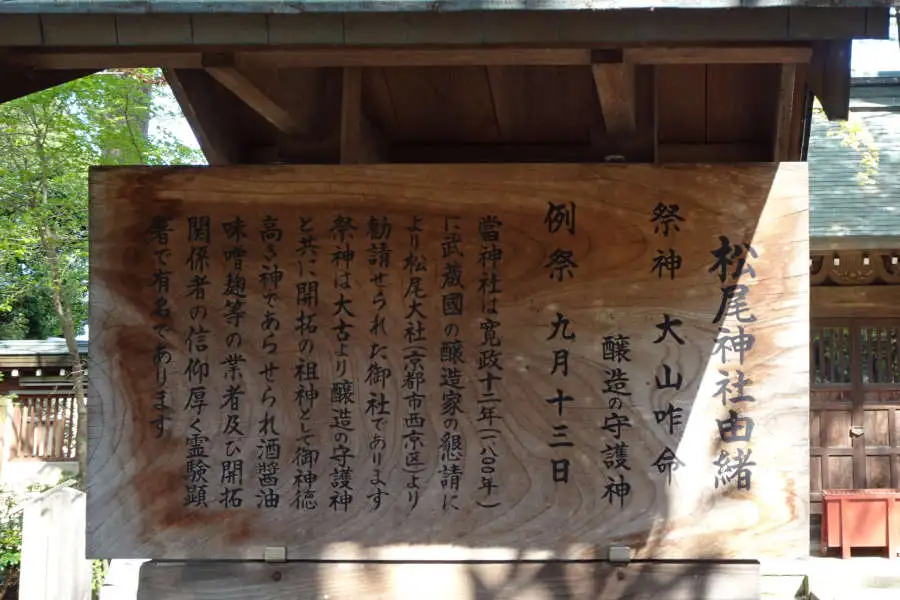 松尾神社由緒
祭神 大山咋命
醸造の守護神
例祭 九月十三日
當神社は寛政十二年(一八〇〇年)
に武蔵國の醸造家の懇請に
より松尾大社(京都市西京区)より
勧請せられた御社であります
祭神は大古より醸造の守護神
と共に開拓の祖神として御神徳
高き神であらせられ酒醤油
味噌麹等の業者及び開拓
関係者の信仰厚く霊験顕
著で有名であります